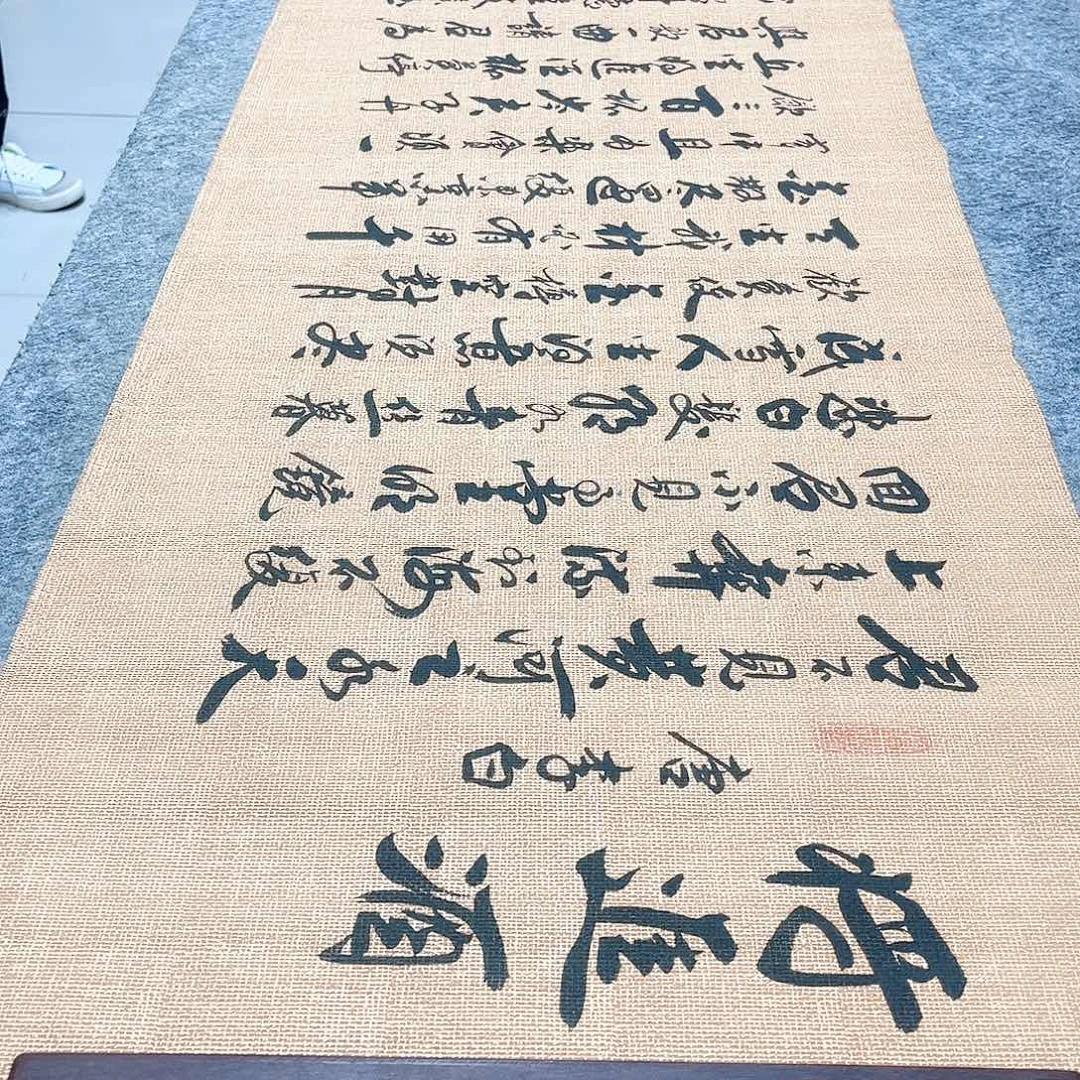 将進酒
唐李白
君不見黄河之水天
上來奔流到海不復
回君不見高堂明鏡
悲白髮朝如青絲暮
成雪人生得意須盡
歡莫使金樽空對月
天生我材必有用千
金散盡還復來烹羊
宰牛且為樂會須一
飲三百杯岑夫子丹
丘生將進酒杯莫停
與君歌一曲請君為